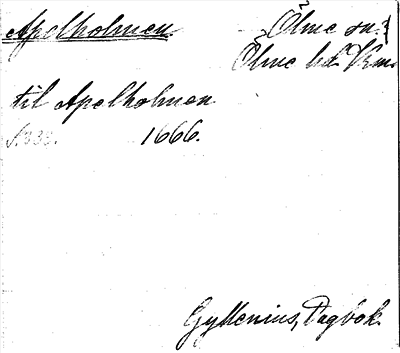 Apelholmen. Ölme sn.
Ölme hd. Vrm.
til Apelholmen
s. 333. 1666.
Gyllenius, Dagbok.